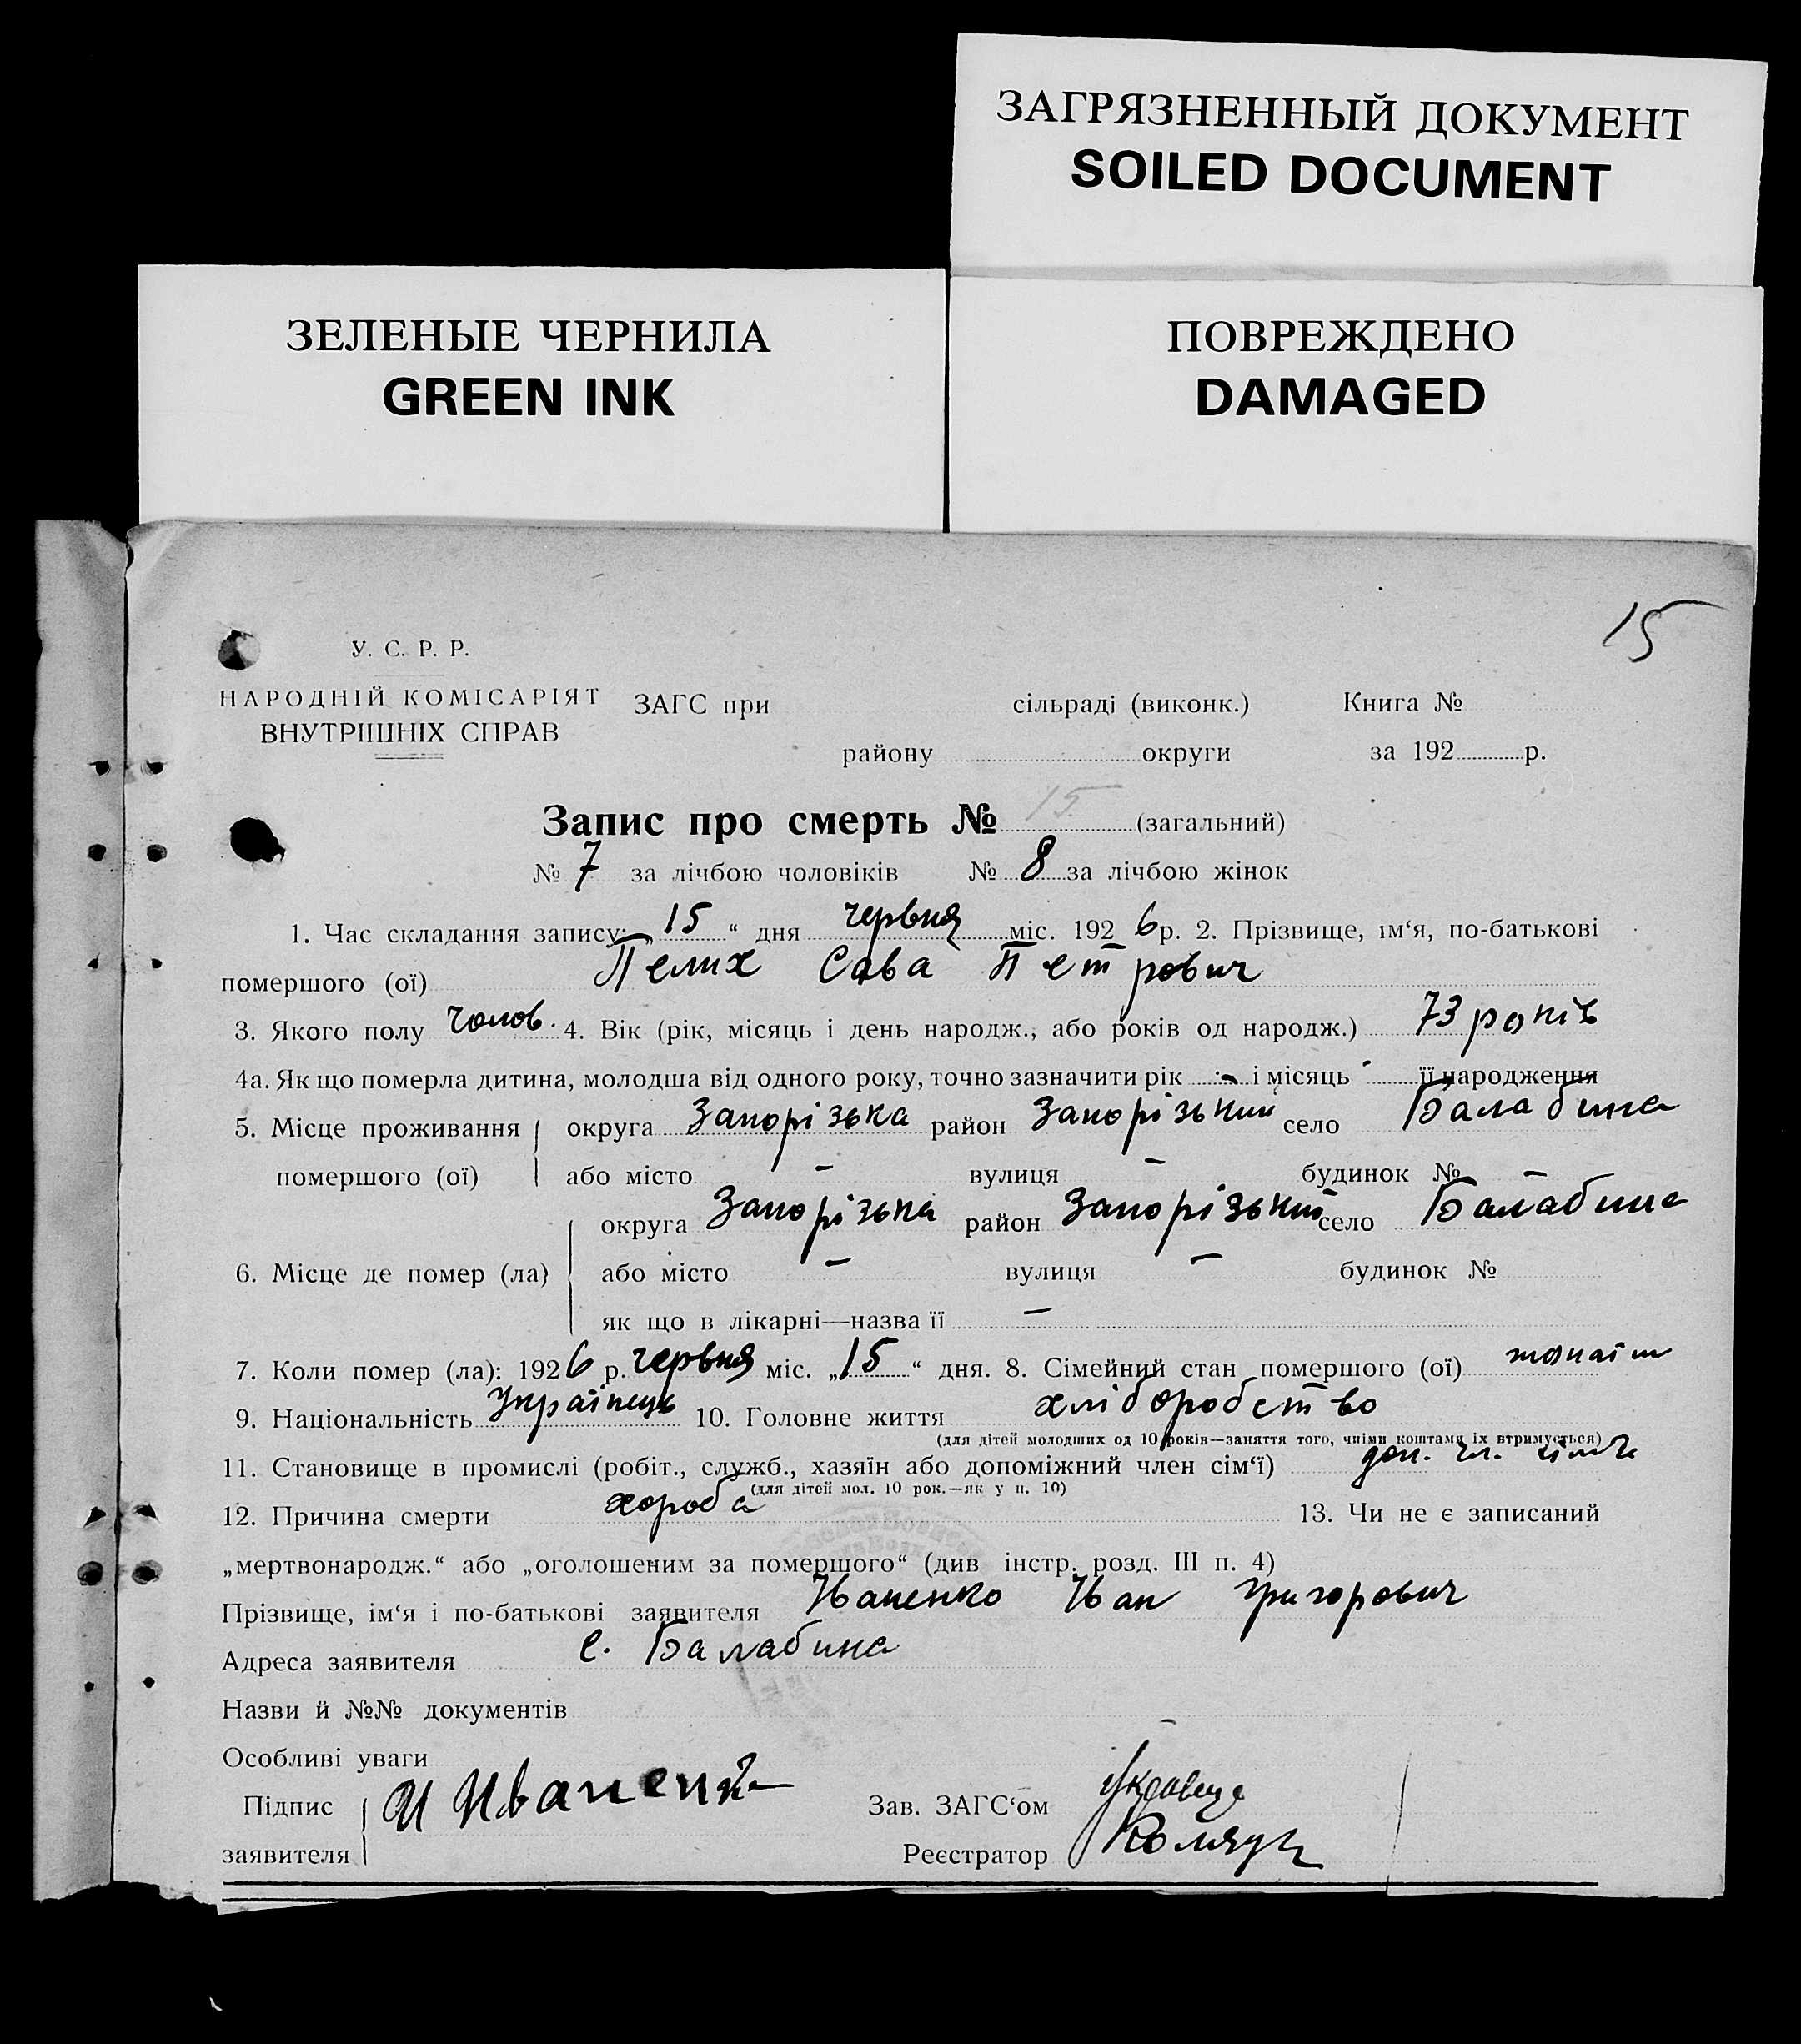 ЗАГРЯЗНЕННЫЙ ДОКУМЕНТ
SOILED DOCUMENT
ЗЕЛЕНЫЕ ЧЕРНИЛА
GREEN INK
ПОВРЕЖДЕНО
DAMAGED
15
У. С. Р. Р.
НАРОДНІЙ КОМІСАРІЯТ
ВНУТРІШНІХ СПРАВ
ЗАГС при сільраді (виконк.) Книга №
району округи за 192 р.
Запис про смерть № 15 (загальний)
№ 7 за лічбою чоловіків № 8 за лічбою жінок
1. Час складання запису: „15“ дня червня міс. 1926 р. 2. Прізвище, ім‘я, по-батькові
помершого (ої) Пелих Сава Петрович
3. Якого полу чолов. 4. Вік (рік, місяць і день народж., або років од народж.) 73 років
4а. Як що померла дитина, молодша від одного року, точно зазначити рік - і місяць - її народження
5. Місце проживання округа Запорізька район Запорізький село Балабине
помершого (ої) або місто – вулиця – будинок № –
округа Запорізька район Запорізький село Балабине
6. Місце де помер (ла) або місто – вулиця – будинок №
як що в лікарні—назва її –
7. Коли помер (ла): 1926 р. червня міс. „15“ дня. 8. Сімейний стан помершого (ої)
9. Національність Українець 10. Головне життя хліборобство
(для дітей молодших од 10 років—заняття того, чиїми коштами їх втримується)
11. Становище в промислі (робіт., служб., хазяїн або допоміжний член сім‘ї) доп. чл. сім‘ї
(для дітей мол. 10 рок.—як у п. 10)
12. Причина смерти хороба 13. Чи не є записаний
„мертвонародж.“ або „оголошеним за помершого“ (див інстр. розд. III п. 4)
Прізвище, ім‘я і по-батькові заявителя Іваненко Іван Григорович
Адреса заявителя с. Балабине
Назви й №№ документів
Особливі уваги
Підпис заявителя И Иваненко
Зав. ЗАГС‘ом
Реєстратор